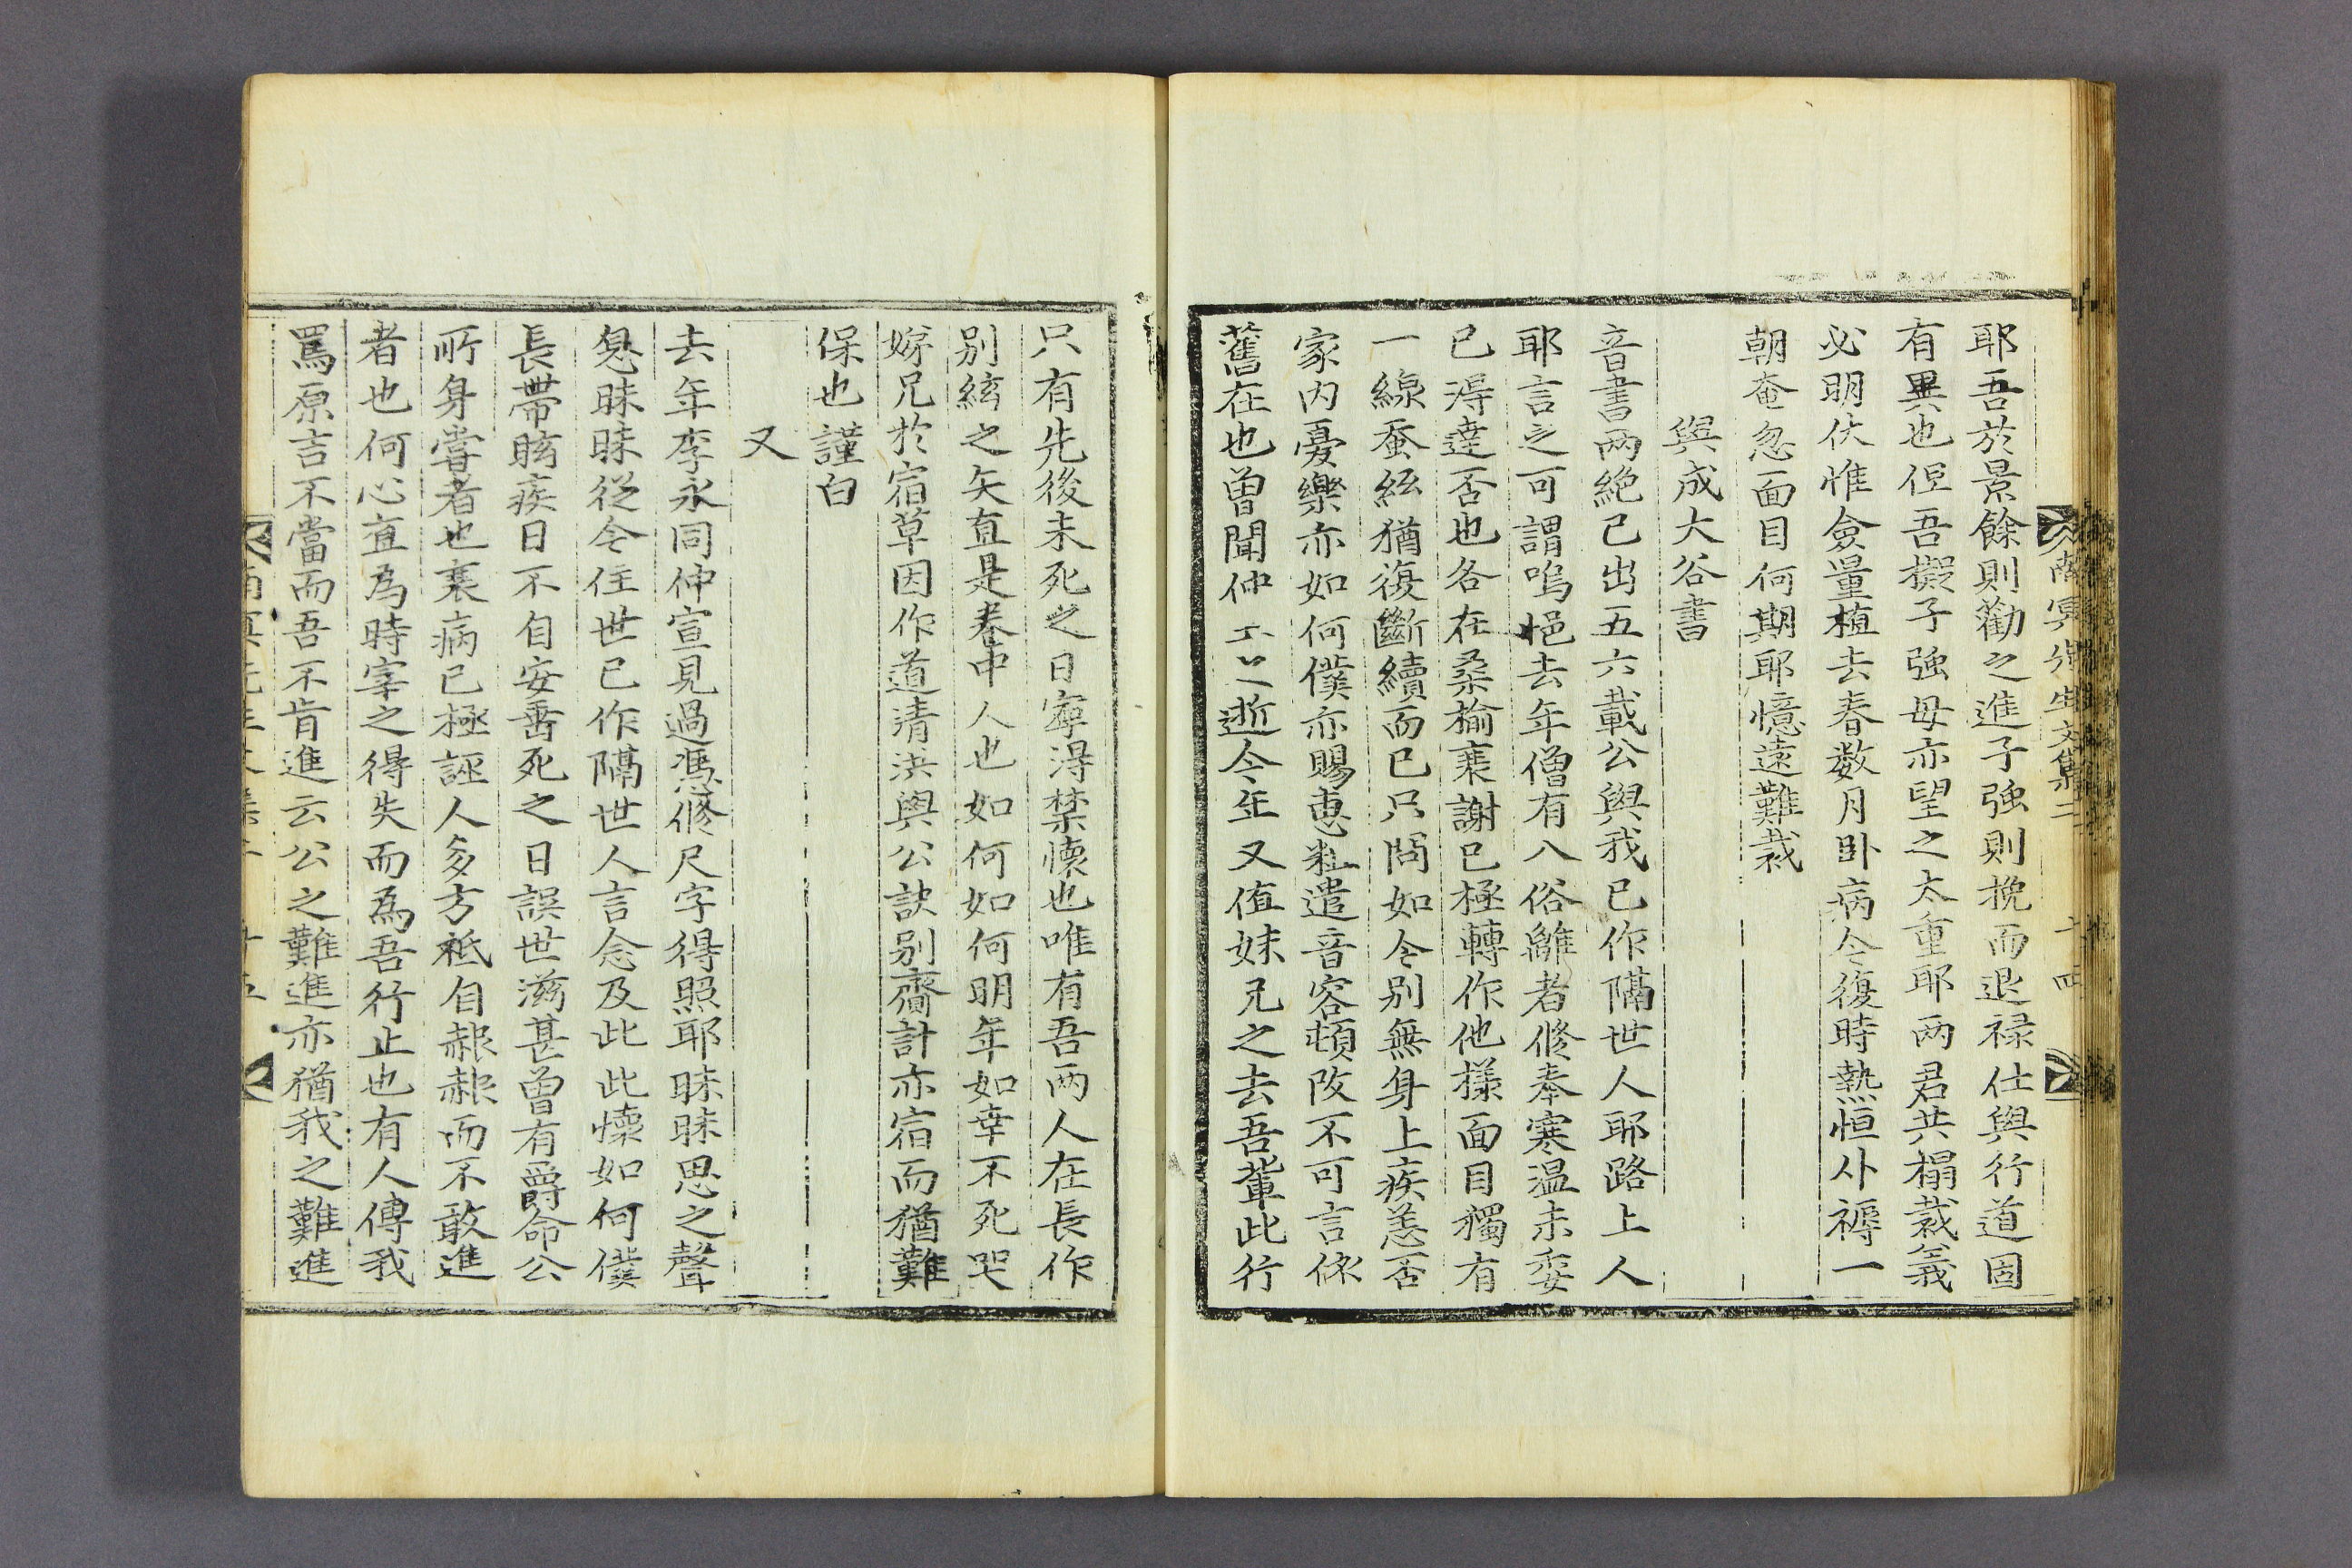 南冥先生文集二 十四
耶吾於景餘則勸之進子強則挽而退祿仕與行道固
有異也但吾擬子強毋亦望之太重耶兩君共榻裁義
必明伏惟僉量植去春数月卧病今復時熱恒仆褥一
朝奄忽面目何期耶憶遠難裁
與成大谷書
音書兩絶已出五六載公與我已作隔世人耶路上人
耶言之可謂嗚悒去年僧有入俗離者修奉寒温未委
已淂達否也各在桑榆衰謝已極轉作他㨾面目獨有
一線蚕絲猶復斷續而已只問如今别無身上疾恙否
家内憂樂亦如何僕亦賜惠粗遣音容頓改不可言條
舊在也曾聞仲 逝今年又值妹兄之去吾輩此行
只有先後未死之日寧淂禁懷也唯有吾兩人在長作
别絃之矢直是眷中人也如何如何明年如幸不死哭
娣兄於宿草因作道清洪與公訣别齎計亦宿而猶難
保也謹白
又
去年李永同仲宣見過憑修尺字得照耶昧昧思之聲
息昧昧從今住世已作隔世人言念及此此懷如何僕
長帶眩疾日不自安垂死之日誤世滋甚曾有爵命公
所身嘗者也衰病已極誣人多方祗自赧赧而不敢進
者也何心直為時宰之得失而為吾行止也有人傳我
罵原吉不當而吾不肯進云公之難進亦猶我之難進